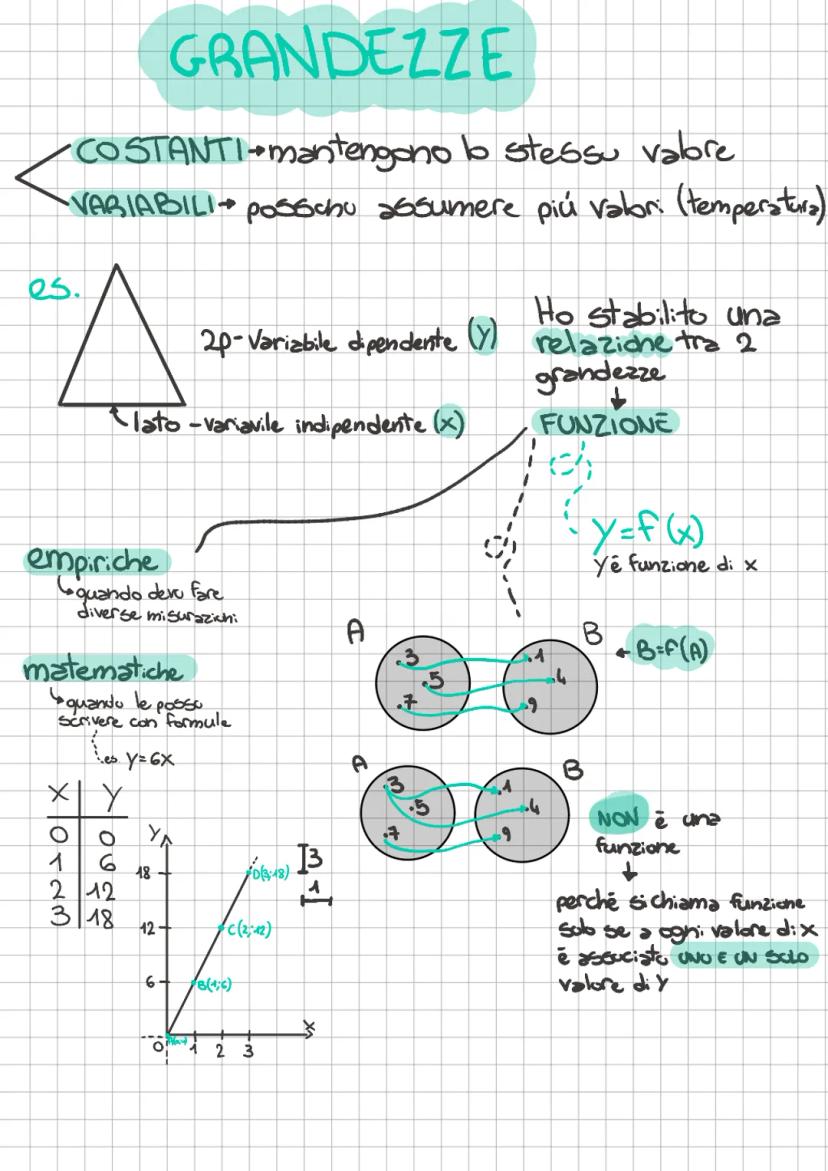 GRANDEZZE
COSTANTI → mantengono lo stesso valore
VARIABILI → possono assumere più valori (temperatura)
es.
2p - Variabile dipendente (y)
lato - variavile indipendente (x)
Ho stabilito una
relazione tra 2
grandezze
↓
FUNZIONE
y=f(x)
Y è funzione di x
empiriche
quando devo fare
diverse misurazioni
matematiche
quando le posso
scrivere con formule
es. y=6x
X Y
0 0
1 6
2 12
3 18
A B
.3 .1
.5 .4
.7 .9
← B=f(A)
A B
.3 .1
.5 .4
.7 9
NON è una
funzione
↓
perché si chiama funzione
solo se a ogni valore di x
è associato UNO E UN SOLO
valore di Y
Y
18
12
6
0 1 2 3
X
D(3;18)
C(2;12)
B(1;6)
3
1